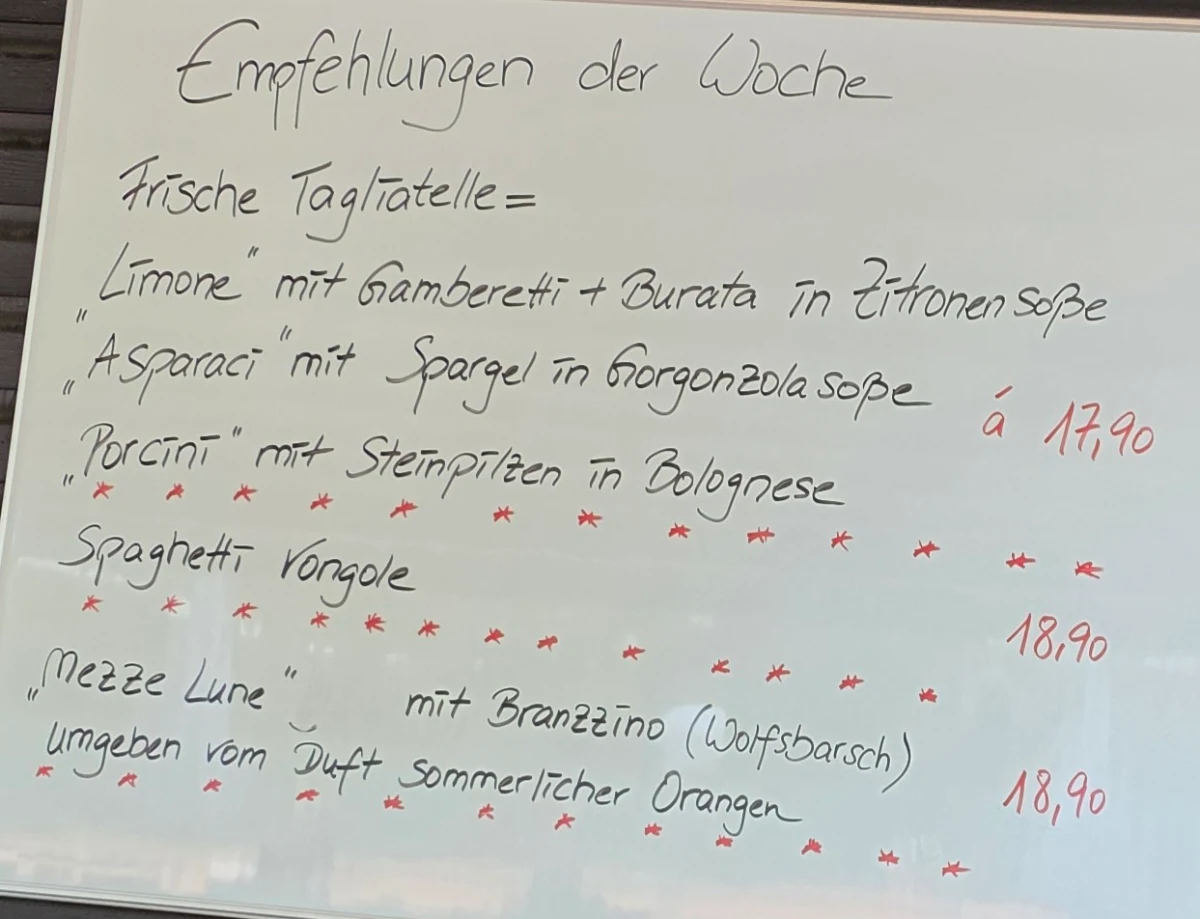 Empfehlungen der Woche
Frische Tagliatelle=
„Limone" mit Gamberetti + Burata in Zitronensoße
„Asparaci" mit Spargel in Gorgonzolasoße á 17,90
„Porcini" mit Steinpilzen in Bolognese
* * * * * * * * * * * * *
Spaghetti Vongole 18,90
* * * * * * * * * * * * *
„Mezze Lune" mit Branzzino (Wolfsbarsch)
umgeben vom Duft sommerlicher Orangen 18,90
* * * * * * * * * * * *